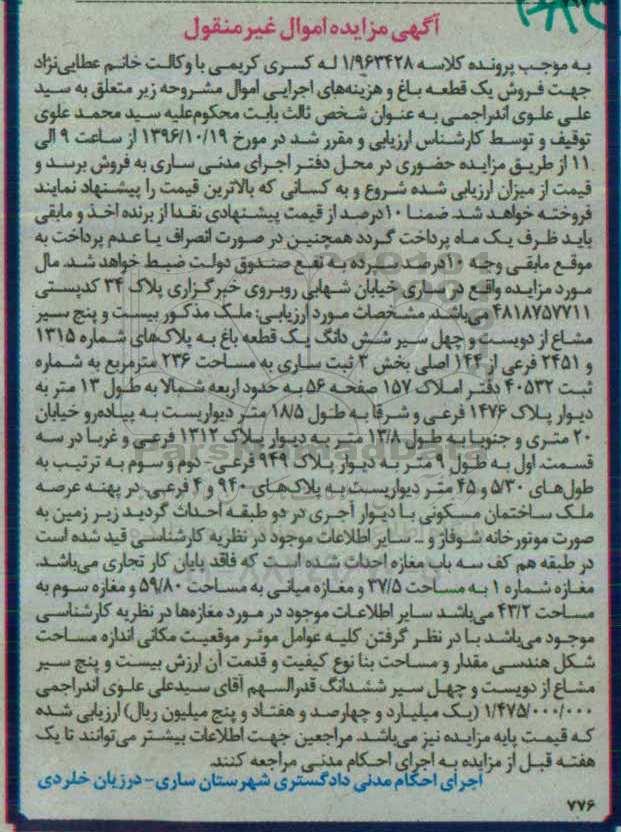 آگهی مزایده اموال غیر منقول
به موجب پرونده کلاسه ۱/۹۶۳۴۲۸ له کسری کریمی با وکالت خانم عطایی‌نژاد
جهت فروش یک قطعه باغ و هزینه‌های اجرایی اموال مشروحه زیر متعلق به سید
علی علوی اندراجمی به عنوان شخص ثالث بابت محکوم‌علیه سید محمد علوی
توقیف و توسط کارشناس ارزیابی و مقرر شد در مورخ ۱۳۹۶/۱۰/۱۹ از ساعت ۹ الی
۱۱ از طریق مزایده حضوری در محل دفتر اجرای مدنی ساری به فروش برسد و
قیمت از میزان ارزیابی شده شروع و به کسانی که بالاترین قیمت را پیشنهاد نمایند
فروخته خواهد شد. ضمنا ۱۰درصد از قیمت پیشنهادی نقدا از برنده اخذ و مابقی
باید ظرف یک ماه پرداخت گردد همچنین در صورت انصراف یا عدم پرداخت به
موقع مابقی وجه ۱۰درصد سپرده به نفع صندوق دولت ضبط خواهد شد. مال
مورد مزایده واقع در ساری خیابان شهابی روبروی خبرگزاری پلاک ۳۴ کدپستی
۴۸۱۸۷۵۷۷۱۱ می‌باشد. مشخصات مورد ارزیابی: ملک مذکور بیست و پنج سیر
مشاع از دویست و چهل سیر شش دانگ یک قطعه باغ به پلاک‌های شماره ۱۳۱۵
و ۲۴۵۱ فرعی از ۱۴۴ اصلی بخش ۳ ثبت ساری به مساحت ۲۳۶ مترمربع به شماره
ثبت ۴۰۵۳۲ دفتر املاک ۱۵۷ صفحه ۵۶ به حدود اربعه شمالا به طول ۱۳ متر به
دیوار پلاک ۱۴۷۶ فرعی و شرقا به طول ۱۸/۵ متر دیواریست به پیاده‌رو خیابان
۲۰ متری و جنوبا به طول ۱۳/۸ متر به دیوار پلاک ۱۳۱۲ فرعی و غربا در سه
قسمت. اول به طول ۹ متر به دیوار پلاک ۹۴۹ فرعی- دوم و سوم به ترتیب به
طول‌های ۵/۳۰ و ۴۵ متر دیواریست به پلاک‌های ۹۴۰ و ۴ فرعی. در پهنه عرصه
ملک ساختمان مسکونی با دیوار آجری در دو طبقه احداث گردید زیر زمین به
صورت موتورخانه شوفاژ و ... سایر اطلاعات موجود در نظریه کارشناسی قید شده است
در طبقه هم کف سه باب مغازه احداث شده است که فاقد پایان کار تجاری می‌باشد.
مغازه شماره ۱ به مساحت ۳۷/۵ و مغازه میانی به مساحت ۵۹/۸۰ و مغازه سوم به
مساحت ۴۳/۲ می‌باشد سایر اطلاعات موجود در مورد مغازه‌ها در نظریه کارشناسی
موجود می‌باشد با در نظر گرفتن کلیه عوامل موثر موقعیت مکانی اندازه مساحت
شکل هندسی مقدار و مساحت بنا نوع کیفیت و قدمت آن ارزش بیست و پنج سیر
مشاع از دویست و چهل سیر ششدانگ قدرالسهم آقای سیدعلی علوی اندراجمی
۱/۴۷۵/۰۰۰/۰۰۰ (یک میلیارد و چهارصد و هفتاد و پنج میلیون ریال) ارزیابی شده
که قیمت پایه مزایده نیز می‌باشد. مراجعین جهت اطلاعات بیشتر می‌توانند تا یک
هفته قبل از مزایده به اجرای احکام مدنی مراجعه کنند.
اجرای احکام مدنی دادگستری شهرستان ساری- درزیان خلردی
۷۷۶
ParsNamadData